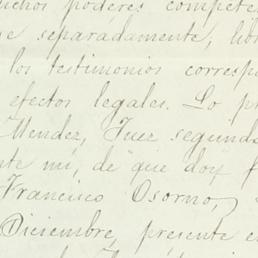 poderes compete
e separadamente; lib
los testimonios corresp
efectos legales. Lo pr
Mendez, Juez segundo
nte mi, de que doy f
Francisco Osorno,
Diciembre, presente e